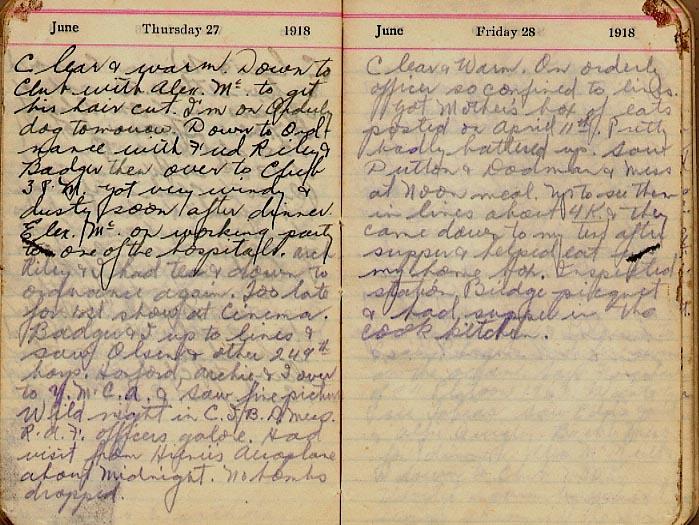 June Thursday 27 1918
Clear & warm. Down to
Club with Alex. Mc to get
his hair cut. I'm on Orderly
dog tomorrow. Down to Ord
nance with Fred Riley &
Badger then over to Club
38 M. got very windy &
dusty soon after dinner.
Elex. Mc. on working party
to one of the hospitals.
Riley & I had tea & down to
ordnance again. Too late
for 1st show at Cinema.
Badger & I up to lines &
saw Olsen & other 249th
boys. archie & I over
to Y.M.C.A. & saw fine picture
Wild night in C.I.B.D. Mess.
R.A.F. officers galore. Had
visit from Huns Aeroplane
about Midnight. No bombs
dropped.
June Friday 28 1918
Clear & Warm. On orderly
officer so confined to lines.
Got Mother's box of eats
posted on April 11th. Pretty
badly battered up. Saw
Dutton & Dodman & Miss
at Noon meal. Up to see them
in lines about 4 K. & they
came down to my tent after
supper & helped eat
my home box. Inspected
station, Bridge picquet
& had supper in the
cook kitchen.